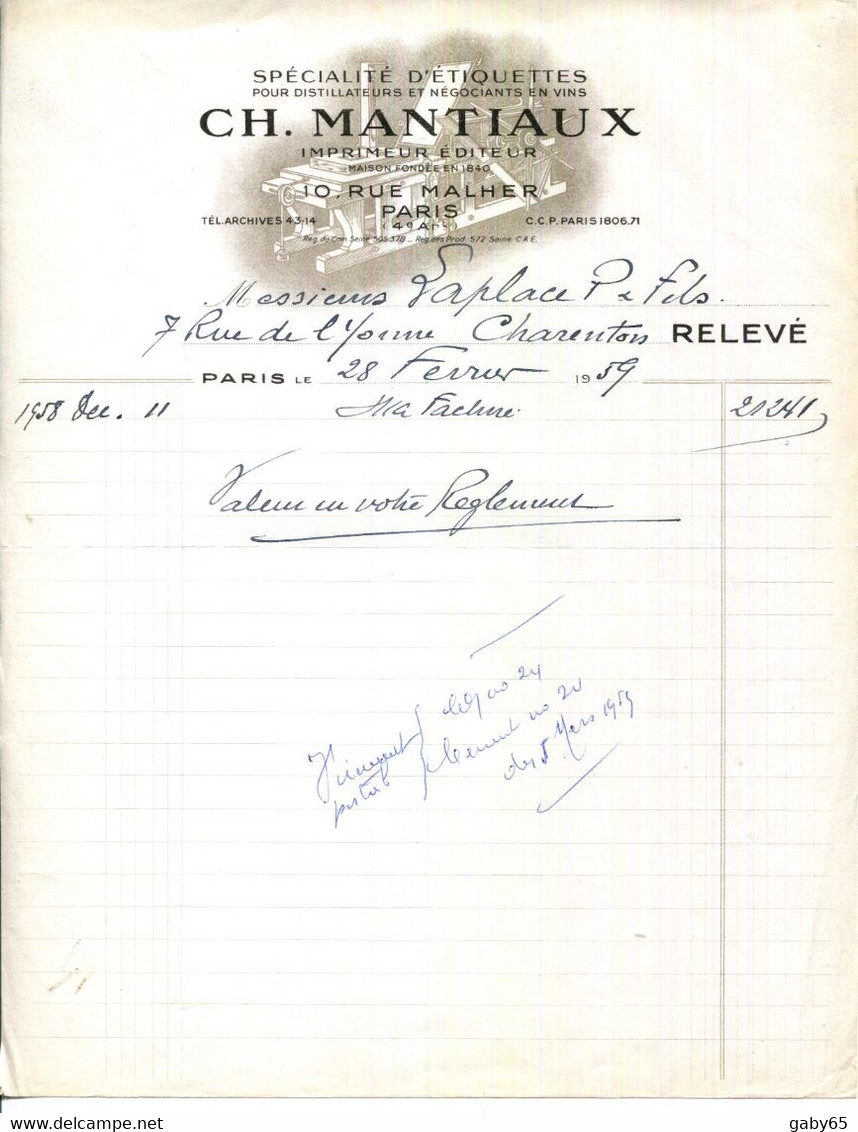 SPÉCIALITÉ D'ÉTIQUETTES
POUR DISTILLATEURS ET NÉGOCIANTS EN VINS
CH. MANTIAUX
IMPRIMEUR ÉDITEUR
MAISON FONDÉE EN 1840
10, RUE MALHER
PARIS
(4e Arrt)
TÉL. ARCHIVES 43-14
C.C.P. PARIS 1806.71
Reg. du Com. Seine 505.378 _ Reg. des Prod. 572 Seine C.A.E.
Messieurs Laplace P & Fils.
7 Rue de l'Yonne Charenton RELEVÉ
PARIS LE 28 Fevrier 1959
1958 Dec. 11 Ma Facture 21241
Valeur en votre Reglement
no 24
Virement no 24
postal
du 5 Mars 1959
gaby65